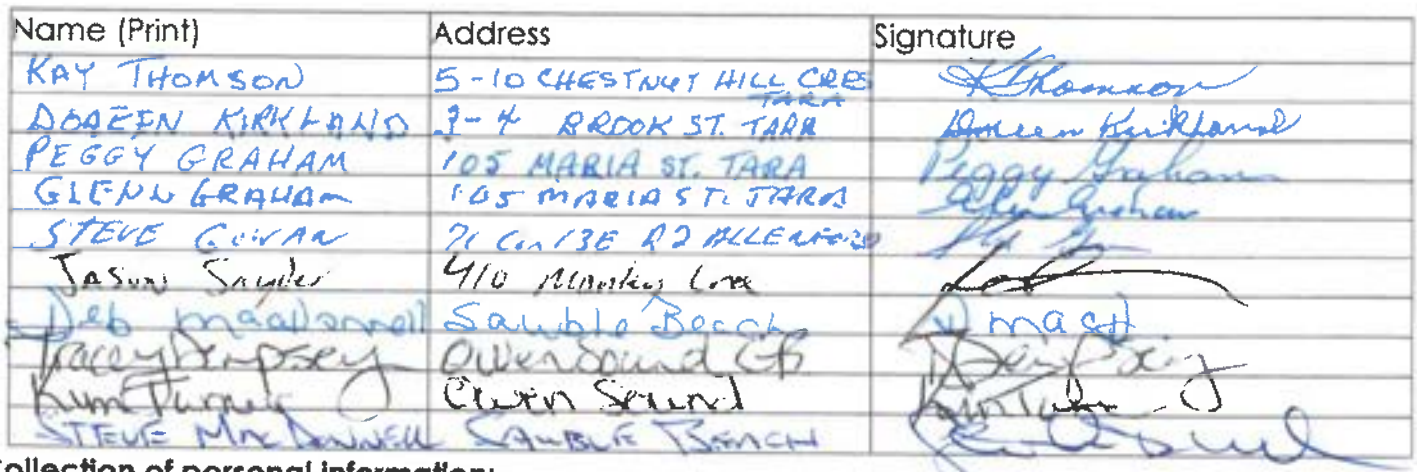 Name (Print) Address Signature
KAY THOMSON 5-10 CHESTNUT HILL CRES TARA KThomson
DOREEN KIRKLAND 4 BROOK ST. TARA Doreen Kirkland
PEGGY GRAHAM 105 MARIA ST. TARA Peggy Graham
GLENN GRAHAM 105 MARIA ST. TARA Glenn Graham
STEVE COWAN 71 Con 13E R2 ALLENFORD
Jason Snyder 410
Deb MacDonnell Sauble Beach D Mac
Tracey Dempsey Owen Sound TDempsey
Kim Turner Owen Sound
STEVE MACDONNELL SAUBLE BEACH
Collection of personal information: